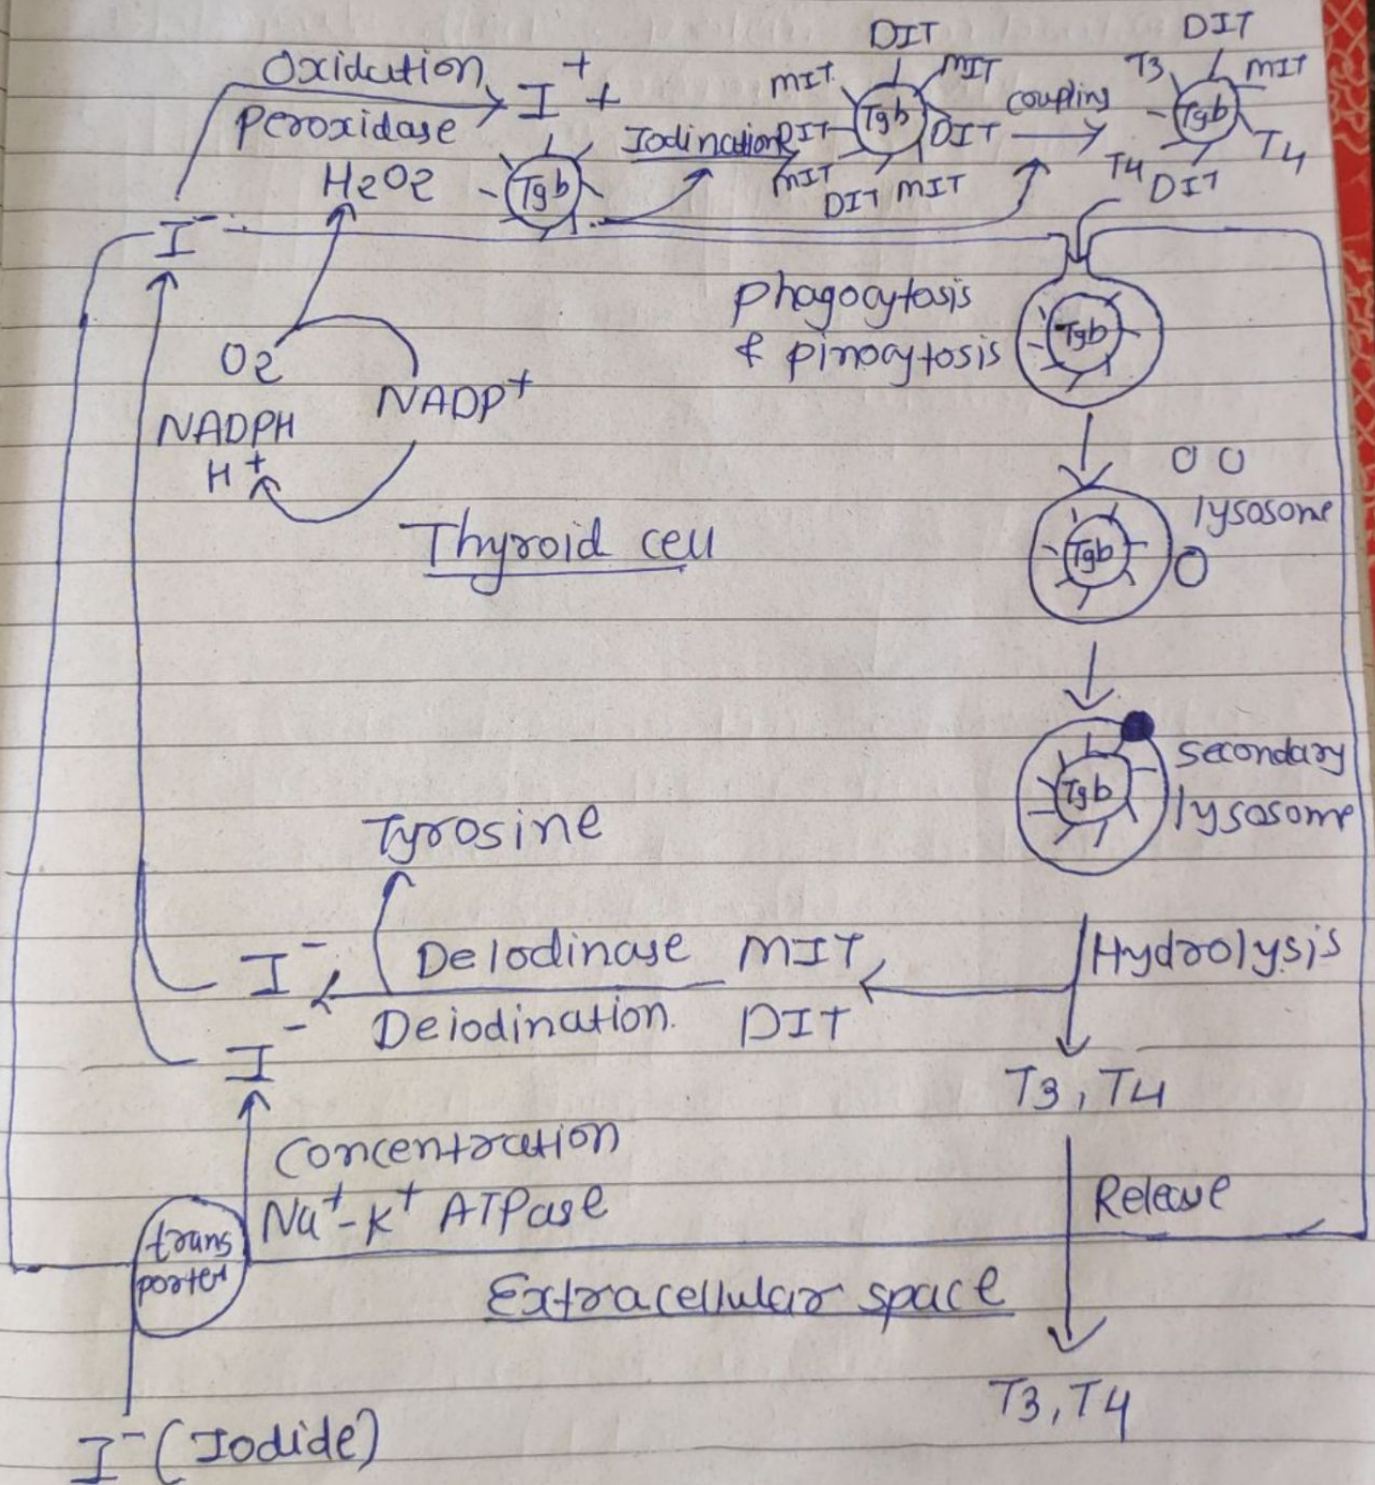 Oxidation
Peroxidase
H2O2
I+ +
Tgb
Iodination
DIT
MIT
MIT
DIT
Tgb
DIT
MIT
DIT
MIT
coupling
DIT
T3
MIT
Tgb
T4
T4
DIT
I-
O2
NADPH
H+
NADP+
Phagocytosis
& pinocytosis
Tgb
Thyroid cell
lysosome
Tgb
Secondary
lysosome
Tgb
Tyrosine
I-
Deiodinase
MIT
Deiodination.
DIT
Hydrolysis
I-
T3, T4
Concentration
Na+-K+ ATPase
Release
trans
porter
Extracellular space
T3, T4
I- (Iodide)